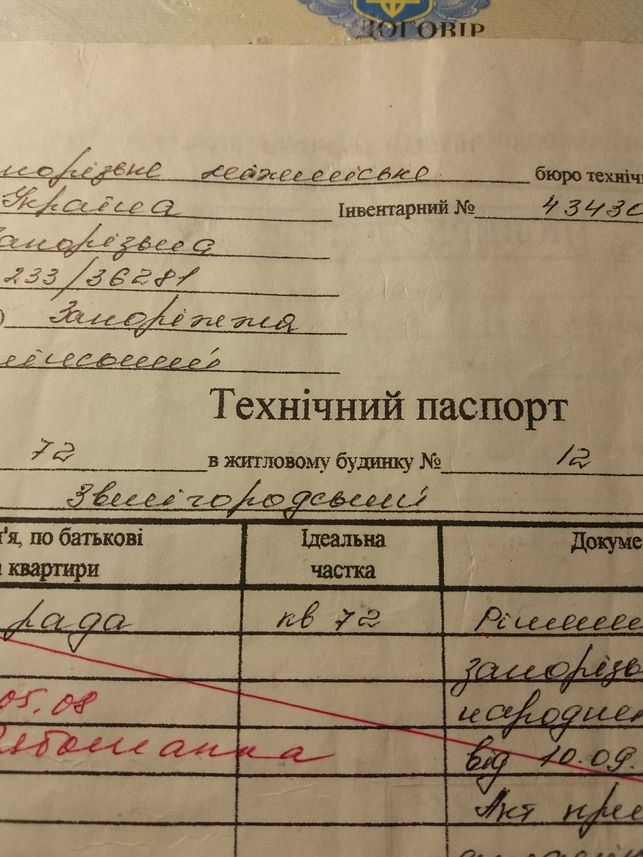 ДОГОВІР
порізьке міжміське бюро техніч
Україна Інвентарний № 43430
Запорізька
233/36281
) Запоріжжя
Технічний паспорт
72 в житловому будинку № 12
Звенігородський
'я, по батькові Ідеальна Докуме
квартири частка
рада кв 72 Рішення
запорізь
05.08 народне
від 10.09.
Акт при